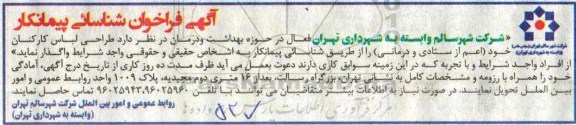 آگهی فراخوان شناسائی پیمانکار
«شرکت شهر سالم وابسته به شهرداری تهران فعال در حوزه بهداشت ودرمان در نظر دارد طراحی لباس کارکنان
خود (اعم از ستادی و درمانی) را از طریق شناسائی پیمانکار به اشخاص حقیقی و حقوقی واجد شرایط واگذار نماید»
از افراد واجد شرایط و با تجربه که در این زمینه سوابق کاری دارند دعوت بعمل می آید ظرف مدت ده روز کاری از تاریخ درج آگهی، آمادگی
خود را همراه با رزومه و مشخصات کامل به نشانی تهران، بزرگراه رسالت، بعداز ۱۶ متری دوم مجیدیه، پلاک ۱۰۰۹ واحد روابط عمومی و امور
بین الملل تحویل نمایند. در صورت نیاز به اطلاعات بیشتر متقاضیان می توانند با تلفن ۹۶۰۲۵۹۶۰-۹۶۰۲۵۹۴۳ تماس حاصل نمایند.
روابط عمومی و امور بین الملل شرکت شهر سالم تهران
(وابسته به شهرداری تهران)